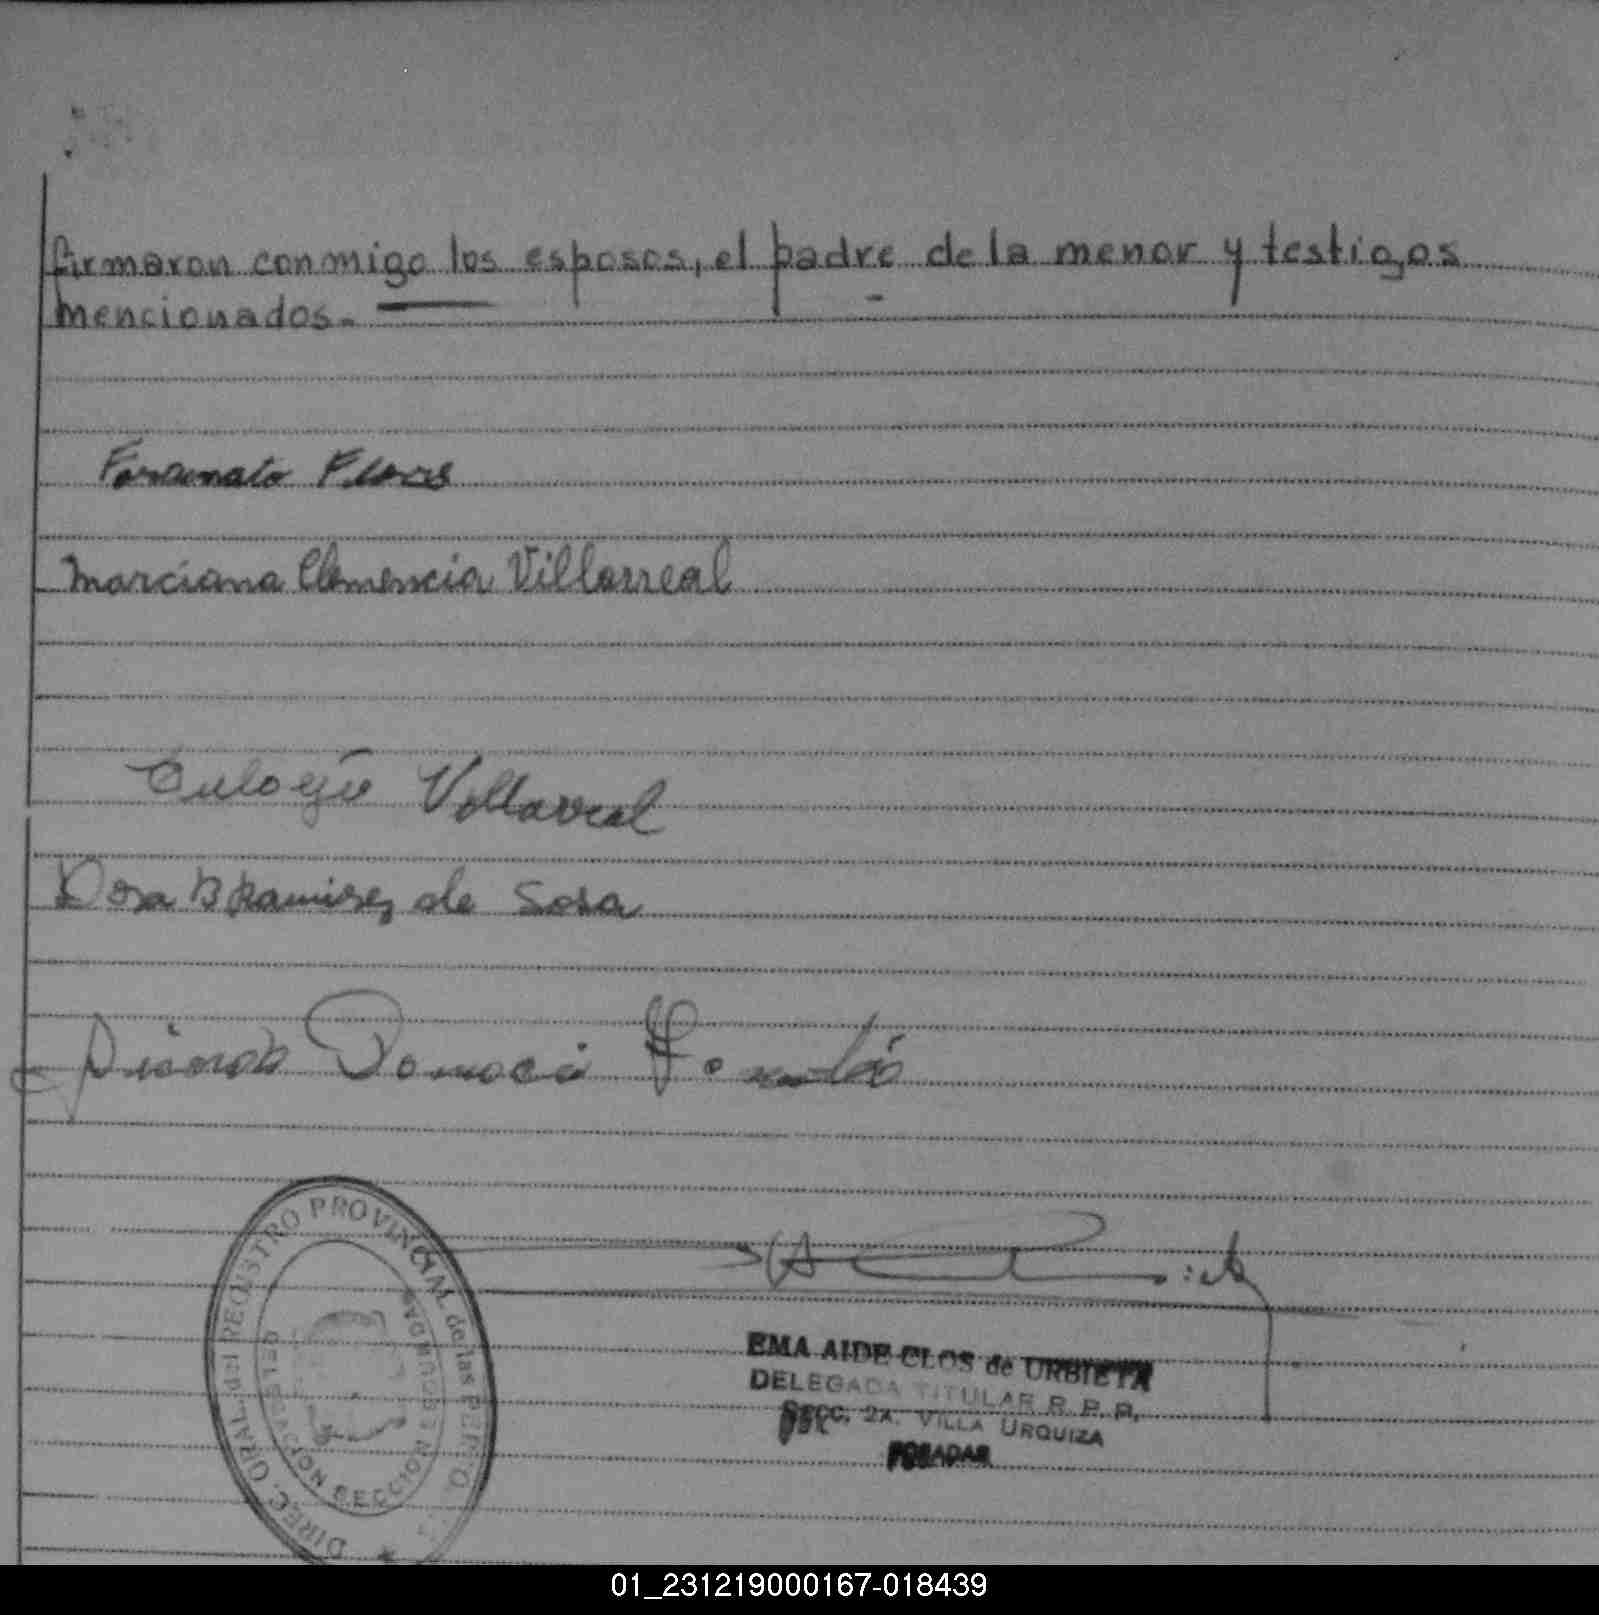 firmaron conmigo los esposos, el padre de la menor y testigos
mencionados.-
Flores
Marciana Clemencia Villarreal
Eulogio Villarreal
Rosa B Ramirez de Sosa
DIREC. GRAL. del REGISTRO PROVINCIAL de las PERSO
DELEGACION SECCION SEGUNDA
EMA AIDE CLOS de URBIETA
DELEGADA TITULAR R. P. P.
Secc. 2a. VILLA URQUIZA
POSADAS
01_231219000167-018439